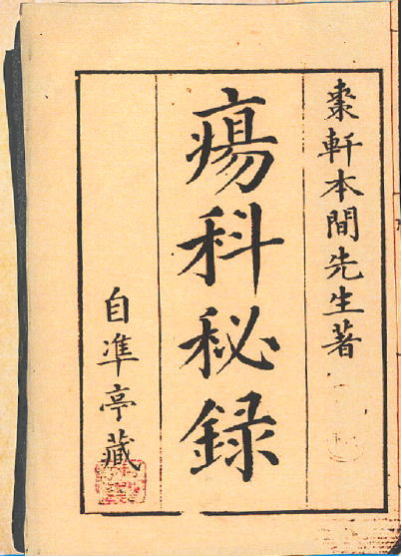 棗軒本間先生著
瘍科秘録
自準亭藏